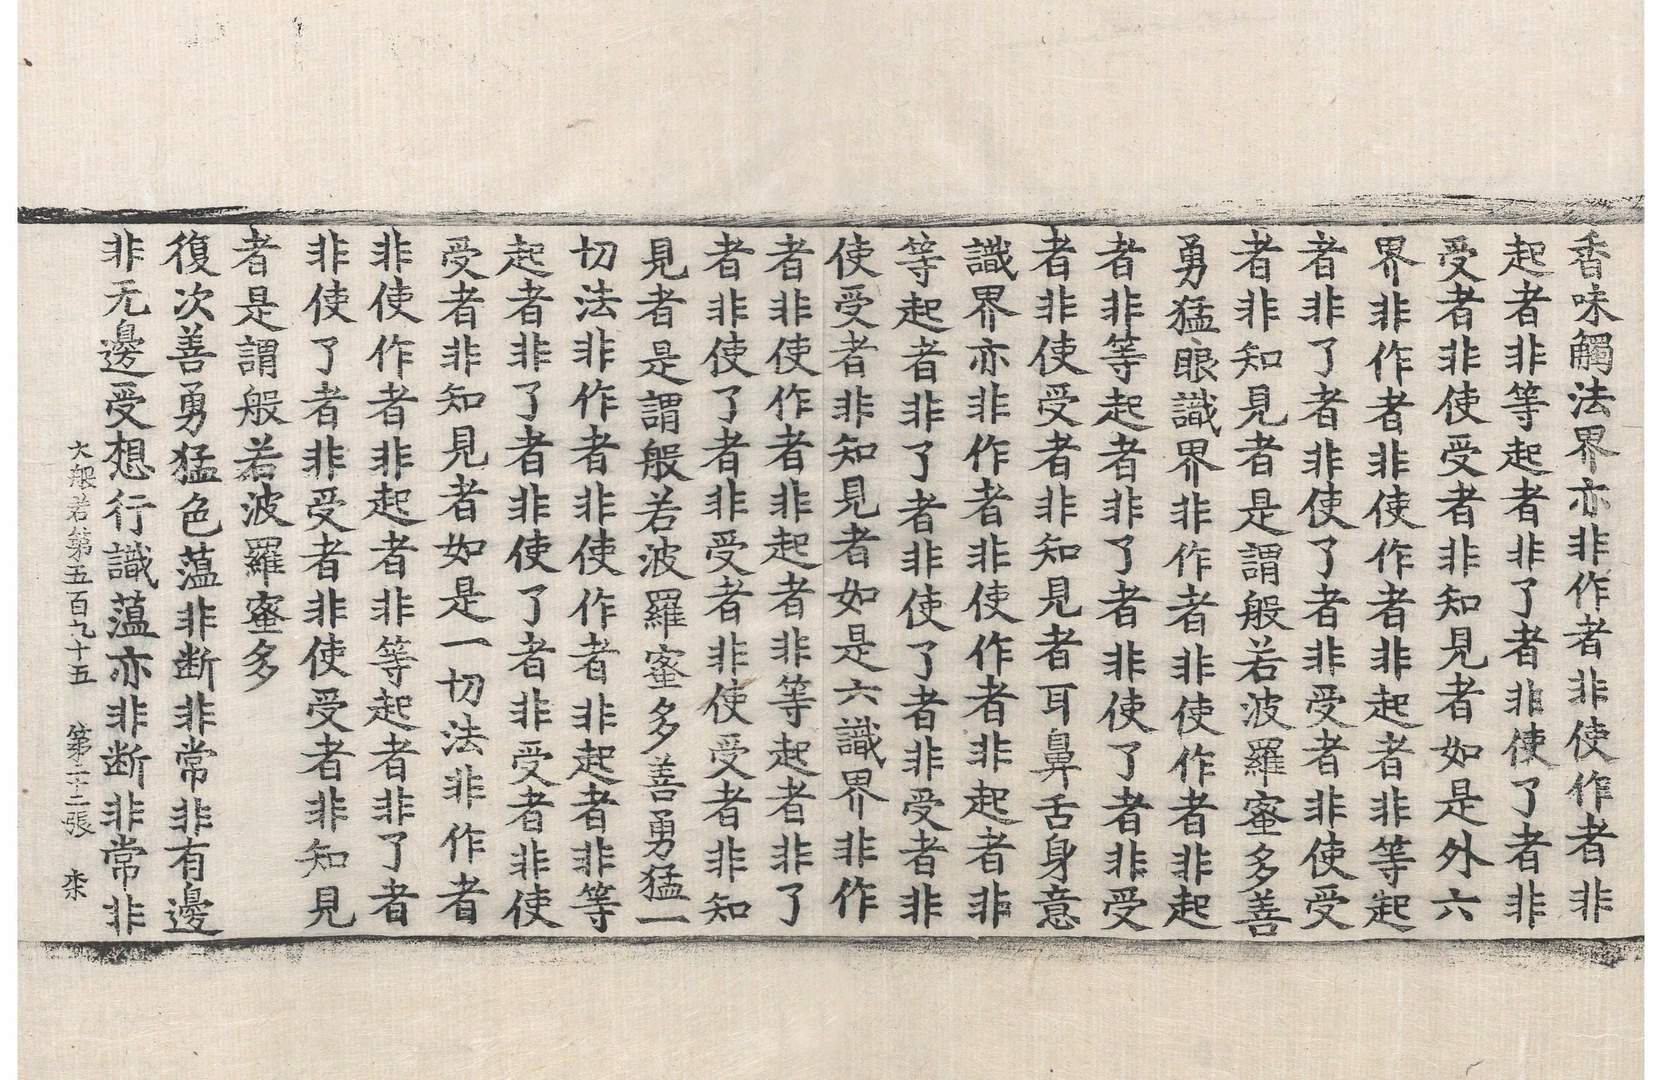 香味觸法界亦非作者非使作者非
起者非等起者非了者非使了者非
受者非使受者非知見者如是外六
界非作者非使作者非起者非等起
者非了者非使了者非受者非使受
者非知見者是謂般若波羅蜜多善
勇猛眼識界非作者非使作者非起
者非等起者非了者非使了者非受
者非使受者非知見者耳鼻舌身意
識界亦非作者非使作者非起者非
等起者非了者非使了者非受者非
使受者非知見者如是六識界非作
者非使作者非起者非等起者非了
者非使了者非受者非使受者非知
見者是謂般若波羅蜜多善勇猛一
切法非作者非使作者非起者非等
起者非了者非使了者非受者非使
受者非知見者如是一切法非作者
非使作者非起者非等起者非了者
非使了者非受者非使受者非知見
者是謂般若波羅蜜多
復次善勇猛色薀非断非常非有邊
非无邊受想行識薀亦非断非常非
大般若第五百九十五 第二十二張 柰